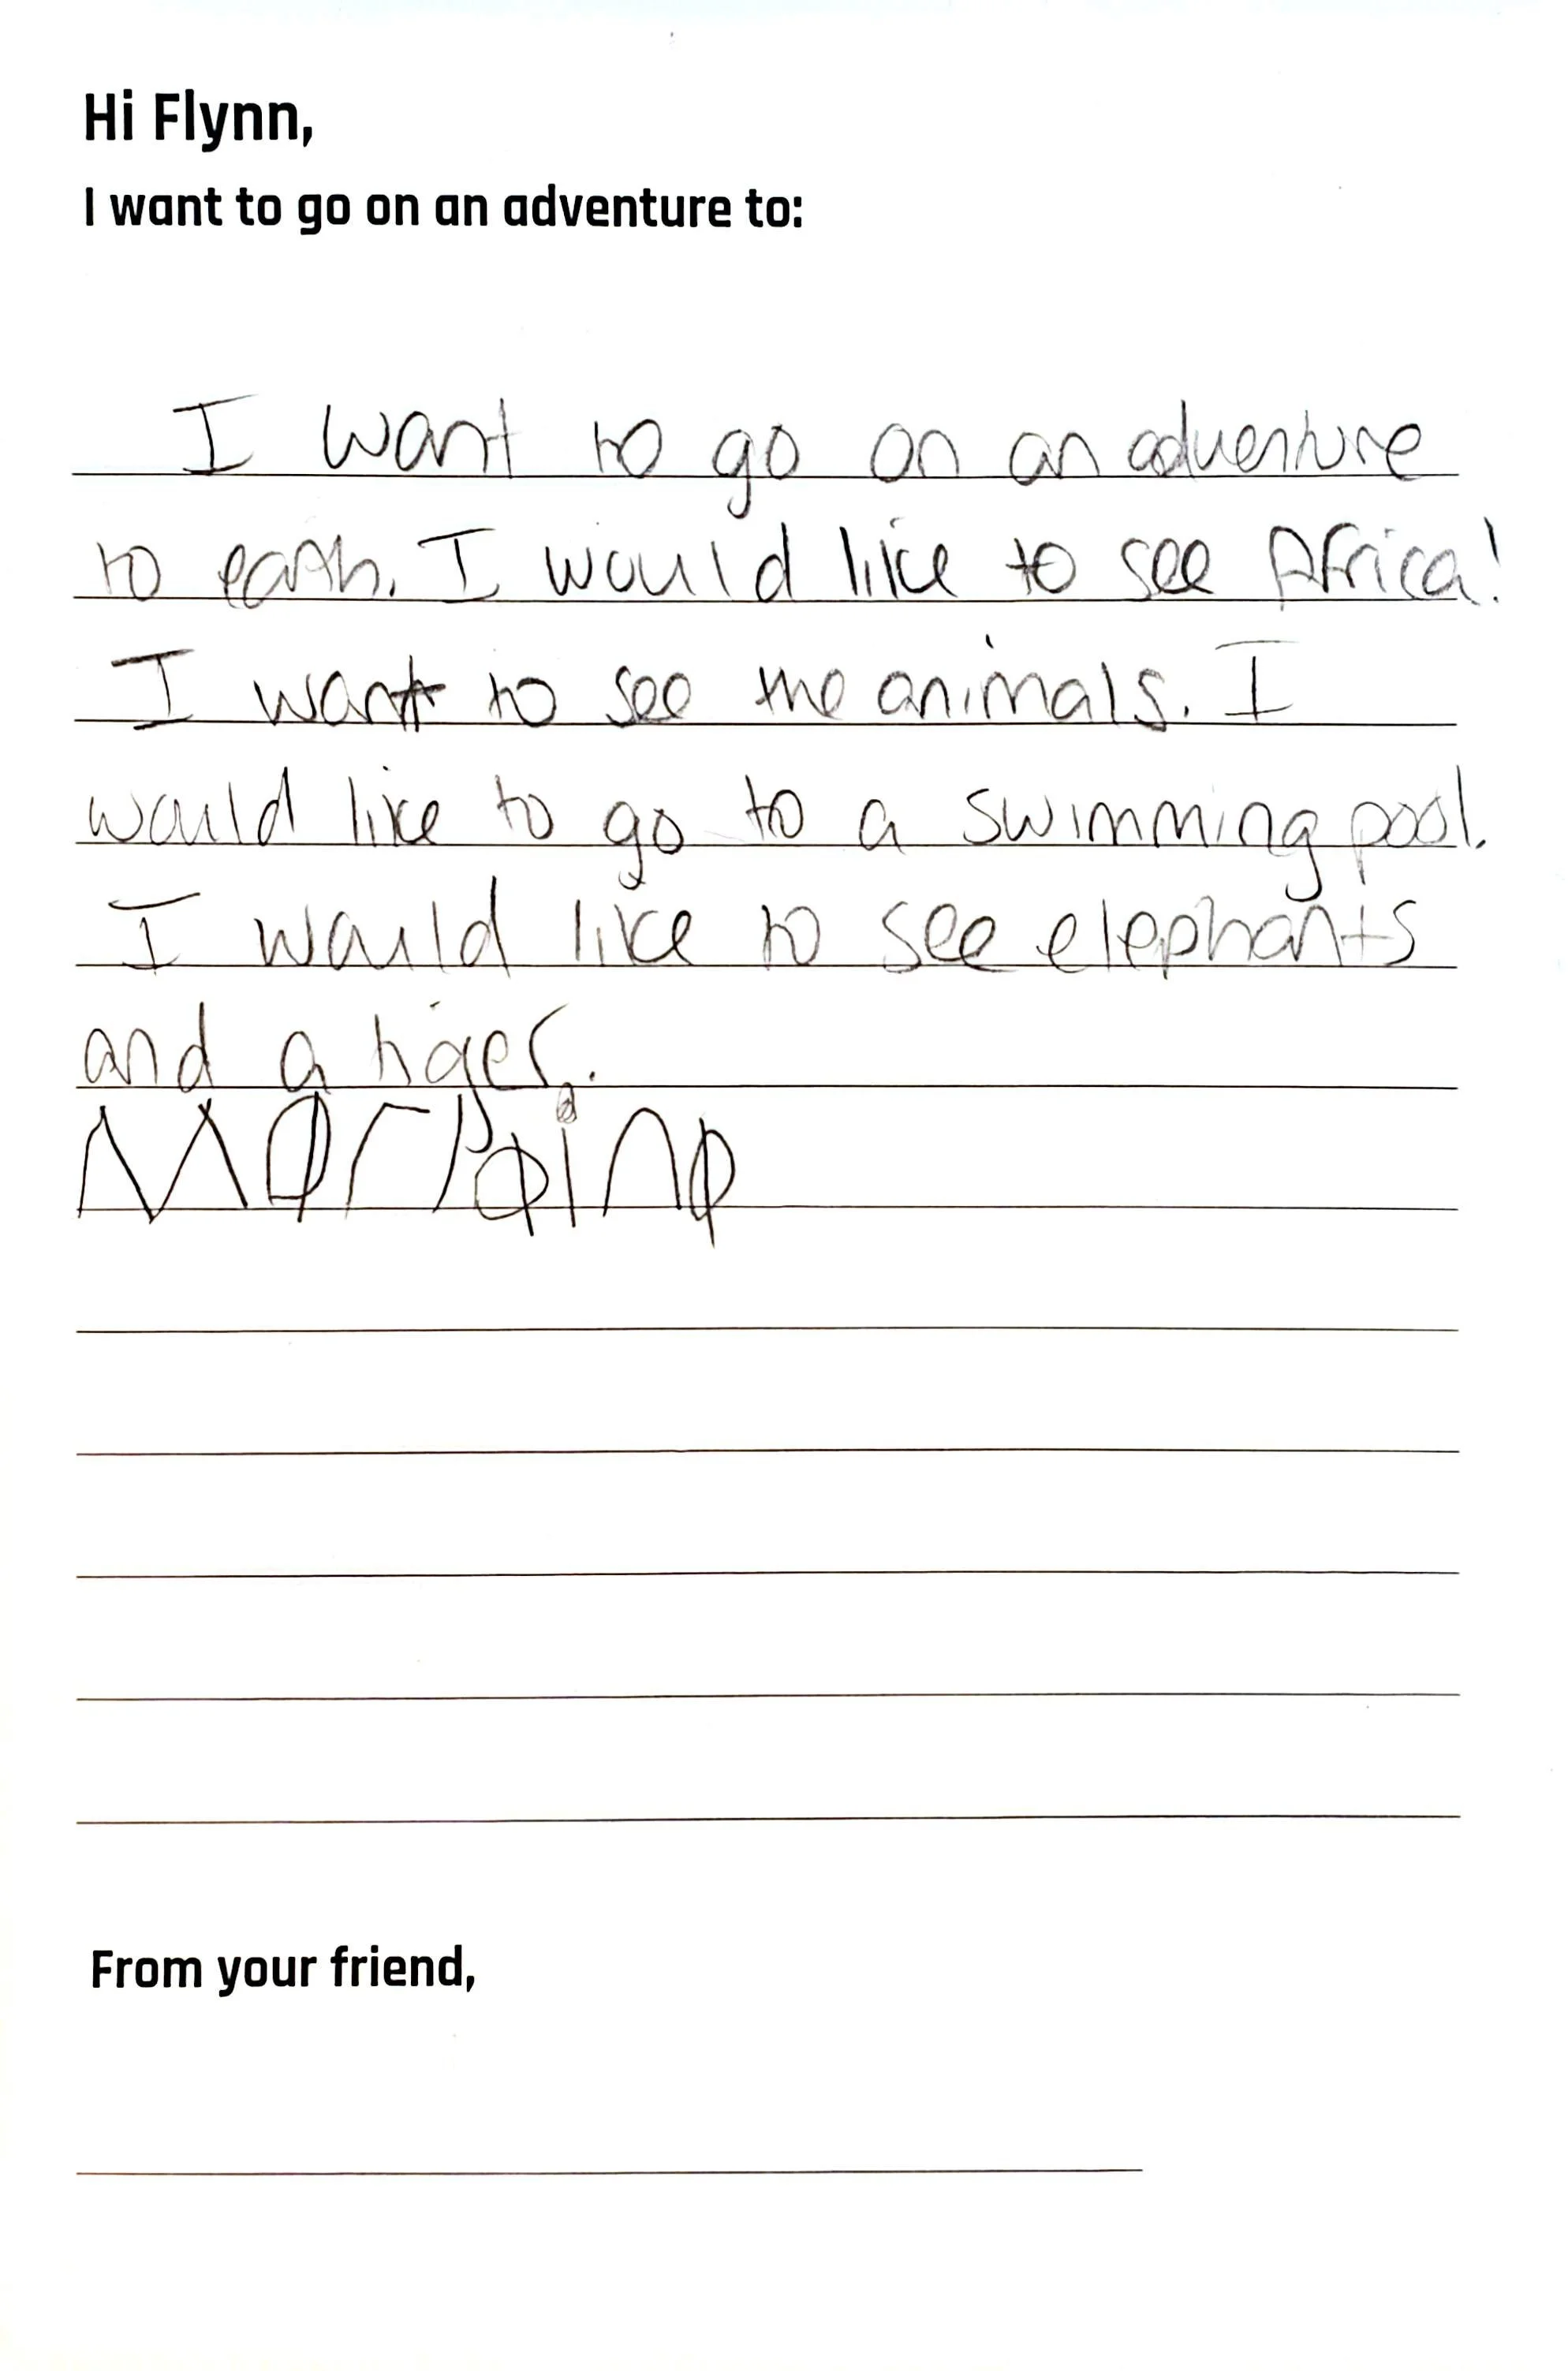 Hi Flynn,
I want to go on an adventure to:
I want to go on an adventure
to earth. I would like to see Africa!
I want to see the animals. I
would like to go to a swimming pool.
I would like to see elephants
and a tiger.
From your friend,